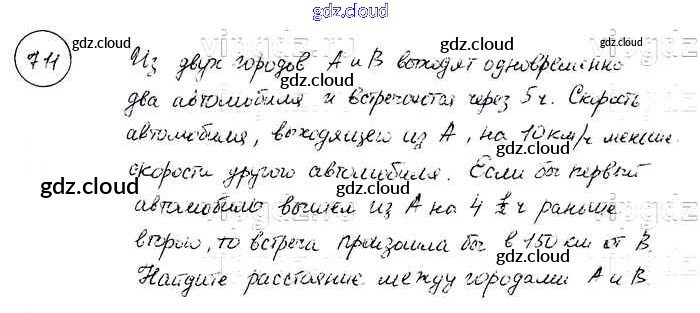 gdz.cloud
711
Из двух городов А и В выходят одновременно
два автомобиля и встречаются через 5 ч. Скорость
автомобиля, выходящего из А, на 10 км/ч меньше
скорости другого автомобиля. Если бы первый
автомобиль вышел из А на 4 1/2 ч раньше
второго, то встреча произошла бы в 150 км от В.
Найдите расстояние между городами А и В.
gdz.cloud gdz.cloud gdz.cloud
gdz.cloud
gdz.cloud gdz.cloud gdz.cloud
gdz.cloud
gdz.cloud gdz.cloud gdz.cloud